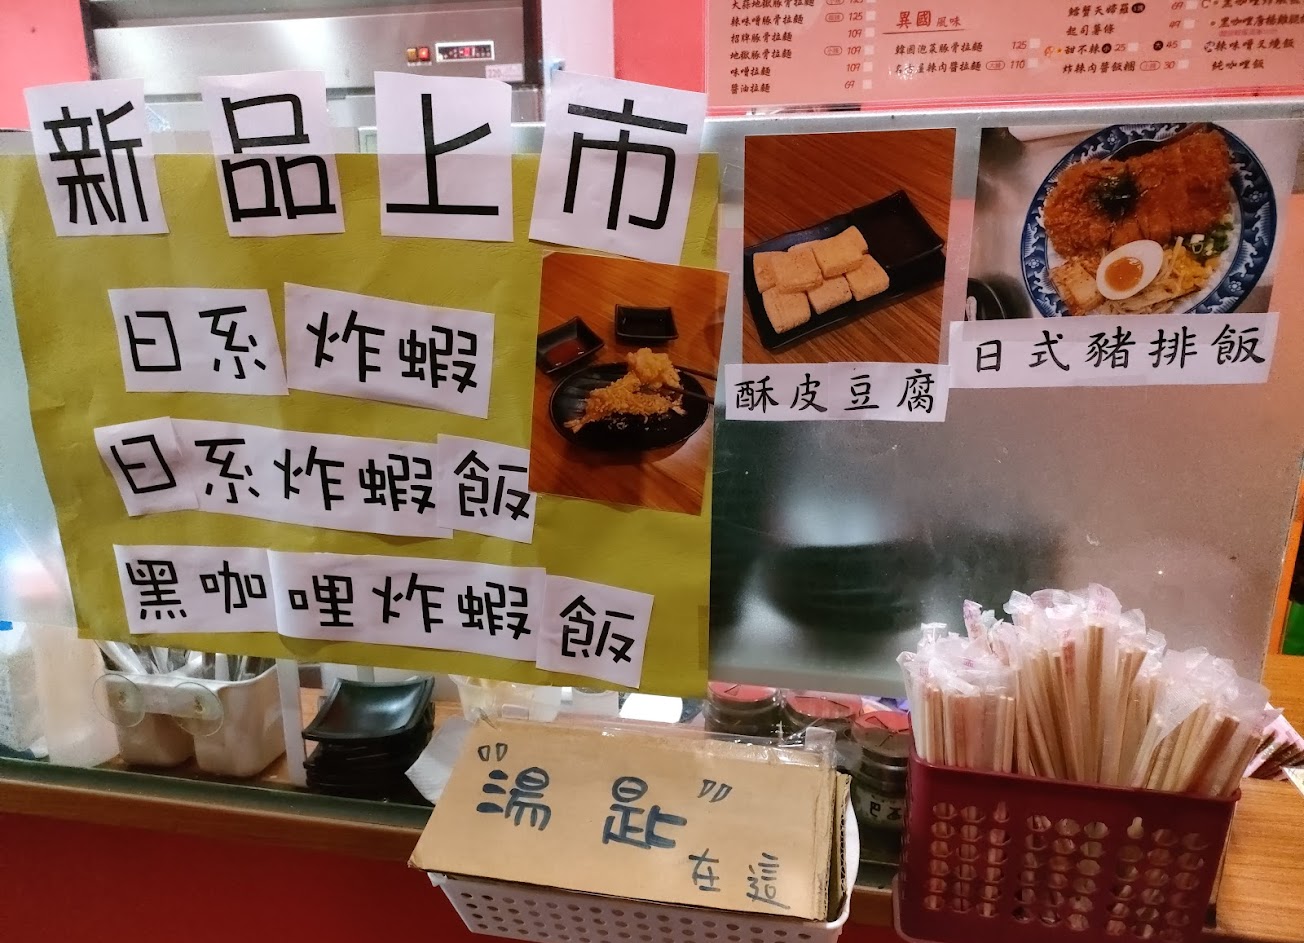 大蒜地獄豚骨拉麵
辣味噌豚骨拉麵 125
招牌豚骨拉麵 109
地獄豚骨拉麵 109
味噌拉麵 109
醬油拉麵 69
異國風味
韓國泡菜豚骨拉麵 125
名古屋辣肉醬拉麵 110
起司薯條
甜不辣 25 45
炸辣肉醬飯糰 30
辣味噌叉燒飯
純咖哩飯
新品上市
日系炸蝦
日系炸蝦飯
黑咖哩炸蝦飯
酥皮豆腐
日式豬排飯
"湯匙"
在這